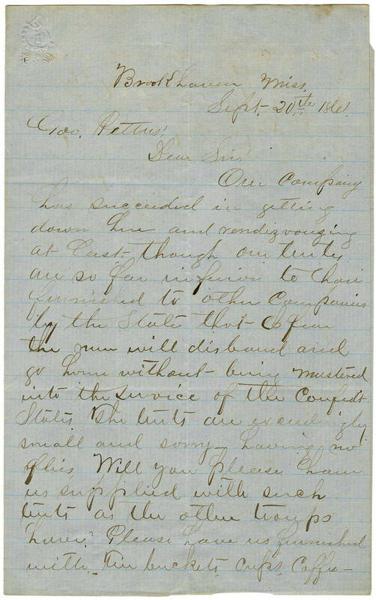 Brookhaven Miss.
Sept. 20th 1861.
Gov. Pettus!
Dear Sir!
Our Company
has succeeded in getting
down here and rendezvousing
at last though our tents
are so far inferior to those
furnished to other Companies
by the State that I fear
the men will disband and
go home without being mustered
into the service of the Confedt
States The tents are exceedingly
small and sorry having no
flies Will you please have
us supplied with such
tents as the other troops
have. Please have us furnished
with Tin buckets cups Coffee